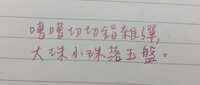 嘈嘈切切錯雜彈,
大珠小珠落玉盤。